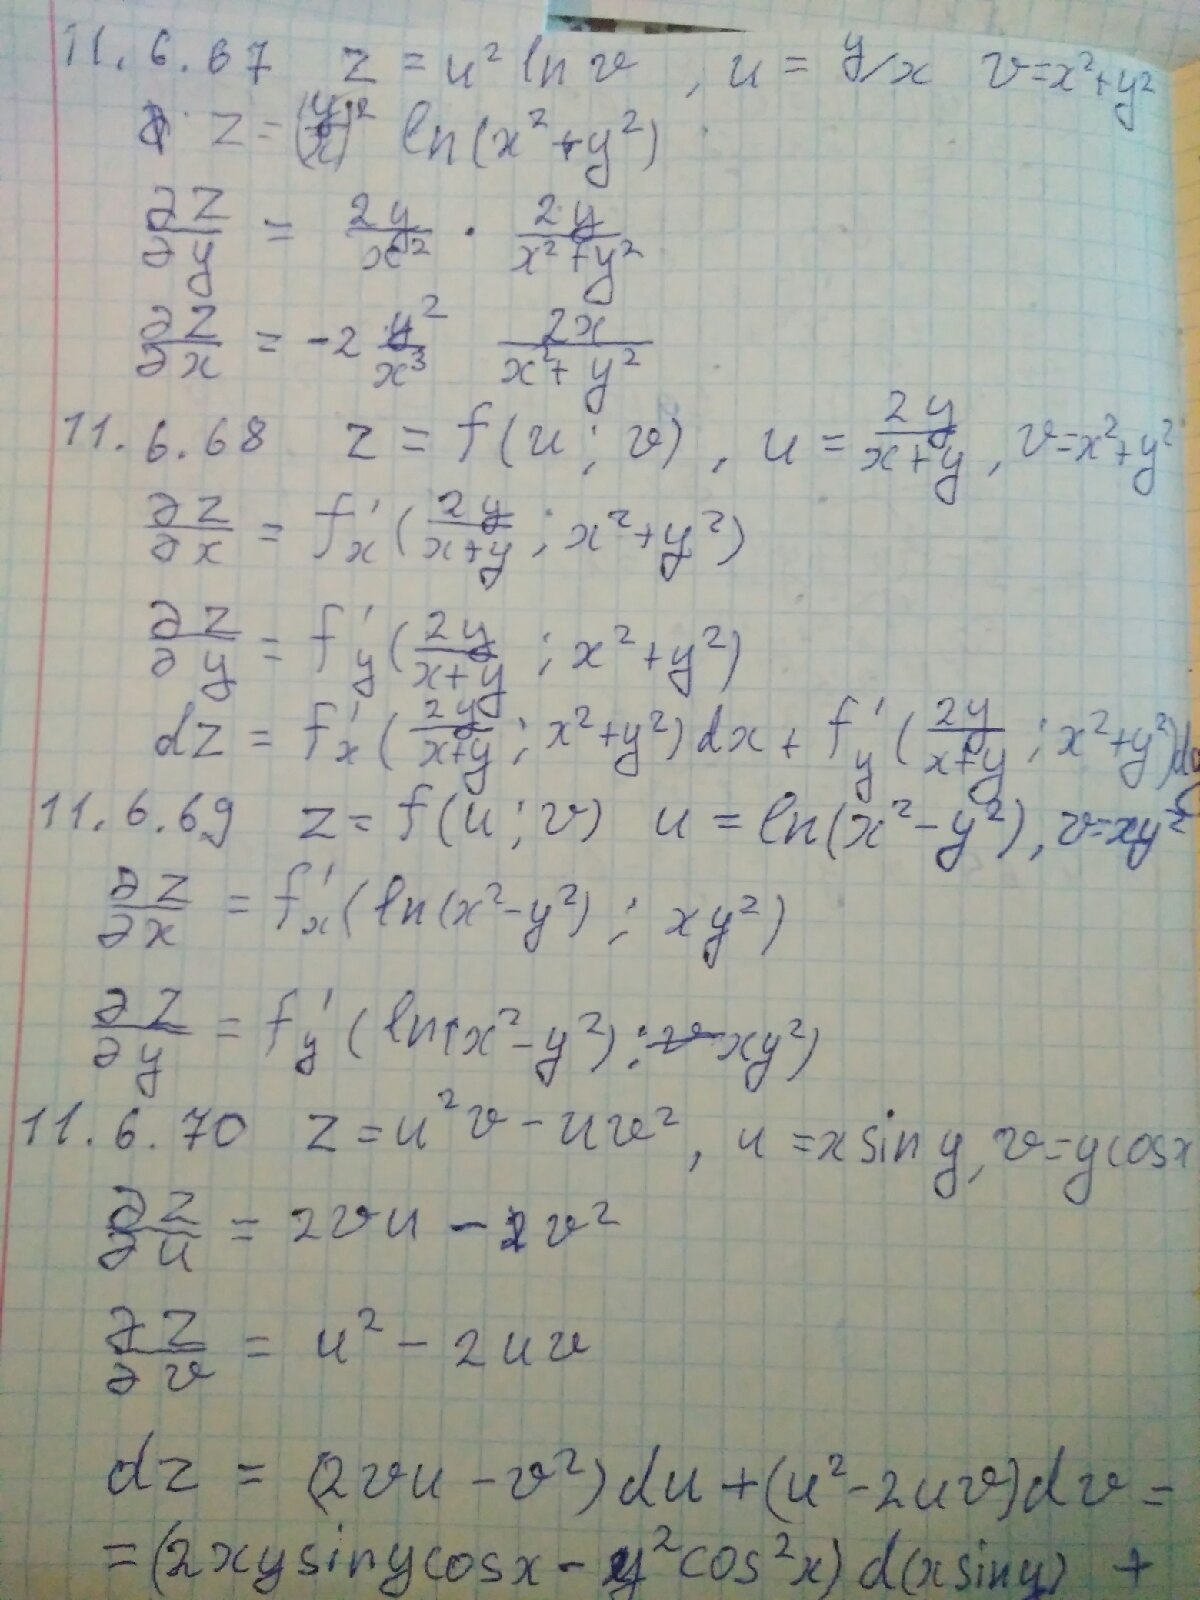 11.6.67 z = u² ln v , u = y/x v = x²+y²
z = (y/x)² ln(x²+y²)
∂z/∂y = 2y/x² · 2y/(x²+y²)
∂z/∂x = -2 y²/x³ 2x/(x²+y²)
11.6.68 z = f(u; v), u = 2y/(x+y), v = x²+y²
∂z/∂x = f'x (2y/(x+y); x²+y²)
∂z/∂y = f'y (2y/(x+y); x²+y²)
dz = f'x (2y/(x+y); x²+y²) dx + f'y (2y/(x+y); x²+y²) dy
11.6.69 z = f(u; v) u = ln(x²-y²), v = xy²
∂z/∂x = f'x (ln(x²-y²); xy²)
∂z/∂y = f'y (ln(x²-y²); xy²)
11.6.70 z = u²v - uv², u = x sin y, v = y cos x
∂z/∂u = 2vu - v²
∂z/∂v = u² - 2uv
dz = (2vu - v²) du + (u² - 2uv) dv =
= (2xy sin y cos x - y² cos² x) d(x sin y) +